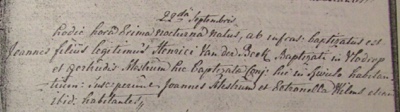 29na Septembris
hodie hora prima nocturna natus, ab infrus. baptizatus est
Joannes filius legitimus Henrici Van der Beek baptizati in Vlodrop
et Gertrudis Alestium hic baptizata Conj. hic in habitan
tium: Susceperunt Joannes Alestium et Petronella Helms etiam
ibid. habitantes